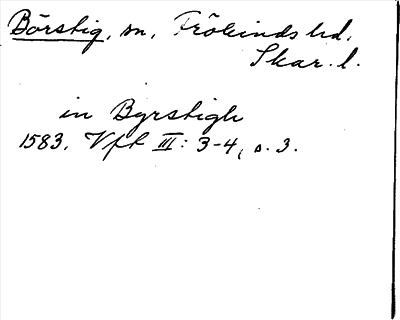 Börstig, sn, Frökinds hd.
Skar. l.
in Byrstigh
1583. Vft III: 3-4, s. 3.